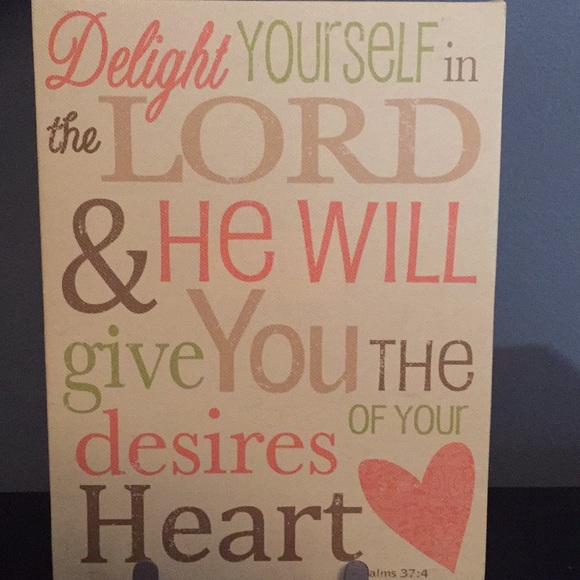 Delight YOURSELF in
the LORD
& He WILL
give You THe
desires OF YOUR
Heart
alms 37:4